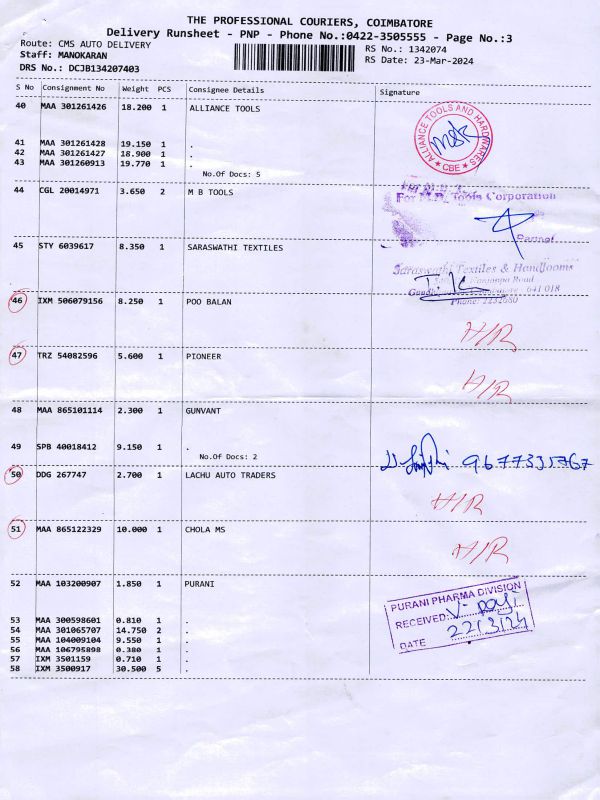 THE PROFESSIONAL COURIERS, COIMBATORE
Delivery Runsheet - PNP - Phone No.:0422-3505555 - Page No.:3
Route: CMS AUTO DELIVERY
Staff: MANOKARAN
DRS No.: DCJB134207403
RS No.: 1342074
RS Date: 23-Mar-2024
S No Consignment No Weight PCS Consignee Details Signature
40 MAA 301261426 18.200 1 ALLIANCE TOOLS
ALLIANCE TOOLS AND HARDWARES
CBE
41 MAA 301261428 19.150 1 .
42 MAA 301261427 18.900 1 .
43 MAA 301260913 19.770 1 .
No.Of Docs: 5
44 CGL 20014971 3.650 2 M B TOOLS
Tools Corporation
45 STY 6039617 8.350 1 SARASWATHI TEXTILES
Saraswathi Textiles & Handlooms
Road
641 018
Phone:
46 IXM 506079156 8.250 1 POO BALAN
H/R
47 TRZ 54082596 5.600 1 PIONEER
H/R
48 MAA 865101114 2.300 1 GUNVANT
49 SPB 40018412 9.150 1 .
No.Of Docs: 2
9677335767
50 DDG 267747 2.700 1 LACHU AUTO TRADERS
H/R
51 MAA 865122329 10.000 1 CHOLA MS
H/R
52 MAA 103200907 1.850 1 PURANI
PURANI PHARMA DIVISION
RECEIVED:
DATE 22/3/24
53 MAA 300598601 0.810 1 .
54 MAA 301065707 14.750 2 .
55 MAA 104009104 9.550 1 .
56 MAA 106795898 0.380 1 .
57 IXM 3501159 0.710 1 .
58 IXM 3500917 30.500 5 .